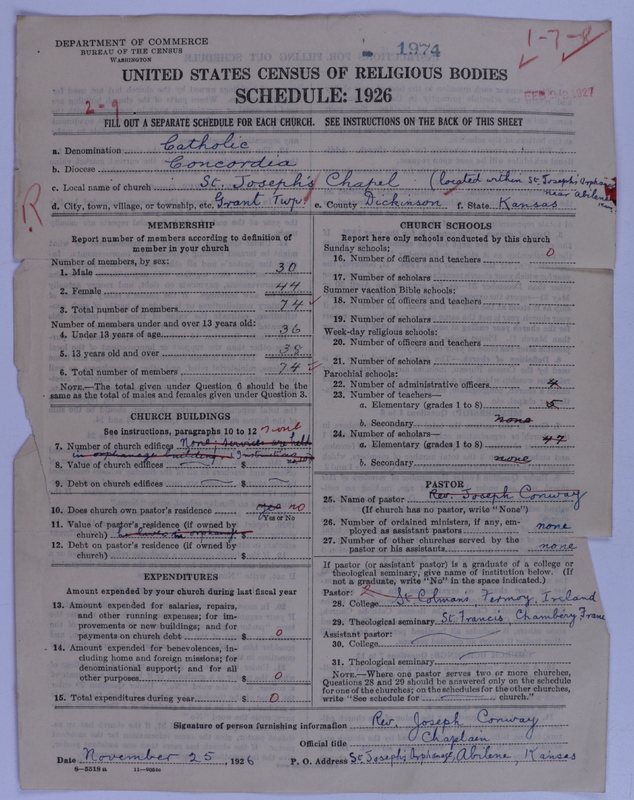 DEPARTMENT OF COMMERCE
BUREAU OF THE CENSUS
WASHINGTON
1974
1-7-8
UNITED STATES CENSUS OF RELIGIOUS BODIES
SCHEDULE: 1926
1927
2-9
FILL OUT A SEPARATE SCHEDULE FOR EACH CHURCH. SEE INSTRUCTIONS ON THE BACK OF THIS SHEET
a. Denomination Catholic
b. Diocese Concordia
c. Local name of church St. Joseph's Chapel (located within St. Joseph's Orphanage
near Abilene
d. City, town, village, or township, etc. Grant Twp. e. County Dickinson f. State Kansas
R
MEMBERSHIP
Report number of members according to definition of
member in your church
Number of members, by sex:
1. Male 30
2. Female 44
3. Total number of members 74
Number of members under and over 13 years old:
4. Under 13 years of age 36
5. 13 years old and over 38
6. Total number of members 74
NOTE.—The total given under Question 6 should be the
same as the total of males and females given under Question 3.
CHURCH BUILDINGS
See instructions, paragraphs 10 to 12 none
7. Number of church edifices None, services are held
in orphanage building
8. Value of church edifices $
9. Debt on church edifices $
10. Does church own pastor's residence yes no
Yes or No
11. Value of pastor's residence (if owned by
church) he lives in orphanage $
12. Debt on pastor's residence (if owned by
church) $
EXPENDITURES
Amount expended by your church during last fiscal year
13. Amount expended for salaries, repairs,
and other running expenses; for im-
provements or new buildings; and for
payments on church debt $ 0
14. Amount expended for benevolences, in-
cluding home and foreign missions; for
denominational support; and for all
other purposes $ 0
15. Total expenditures during year $ 0
CHURCH SCHOOLS
Report here only schools conducted by this church
Sunday schools:
16. Number of officers and teachers 0
17. Number of scholars
Summer vacation Bible schools:
18. Number of officers and teachers
19. Number of scholars
Week-day religious schools:
20. Number of officers and teachers
21. Number of scholars
Parochial schools:
22. Number of administrative officers 4
23. Number of teachers—
a. Elementary (grades 1 to 8) 5
b. Secondary none
24. Number of scholars—
a. Elementary (grades 1 to 8) 47
b. Secondary none
PASTOR
25. Name of pastor Rev. Joseph Conway
(If church has no pastor, write "None")
26. Number of ordained ministers, if any, em-
ployed as assistant pastors none
27. Number of other churches served by the
pastor or his assistants none
If pastor (or assistant pastor) is a graduate of a college or
theological seminary, give name of institution below. (If
not a graduate, write "No" in the space indicated.)
Pastor:
28. College St Colman's Fermoy, Ireland
29. Theological seminary St. Francis Chambéry France
Assistant pastor:
30. College
31. Theological seminary
NOTE.—Where one pastor serves two or more churches,
Questions 28 and 29 should be answered only on the schedule
for one of the churches; on the schedules for the other churches,
write "See schedule for church."
Signature of person furnishing information Rev. Joseph Conway
Official title Chaplain
Date November 25, 1926 P. O. Address St. Joseph's Orphanage, Abilene, Kansas
8—5518a 11—9036a